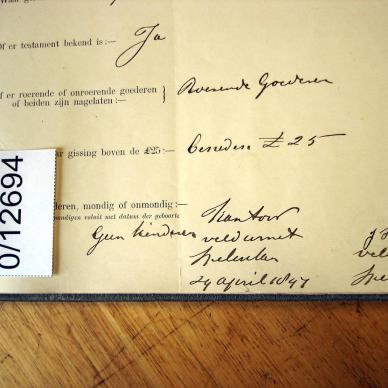 Of er testament bekend is:— Ja
Of er roerende of onroerende goederen
of beiden zijn nagelaten:— } Roerende Goederen
ar gissing boven de £25:— £ 25
deren, mondig of onmondig:—
voluit met datum der geboorte
Geen kinderen
Kantoor
veldcornet
29 april 1897
0/12694